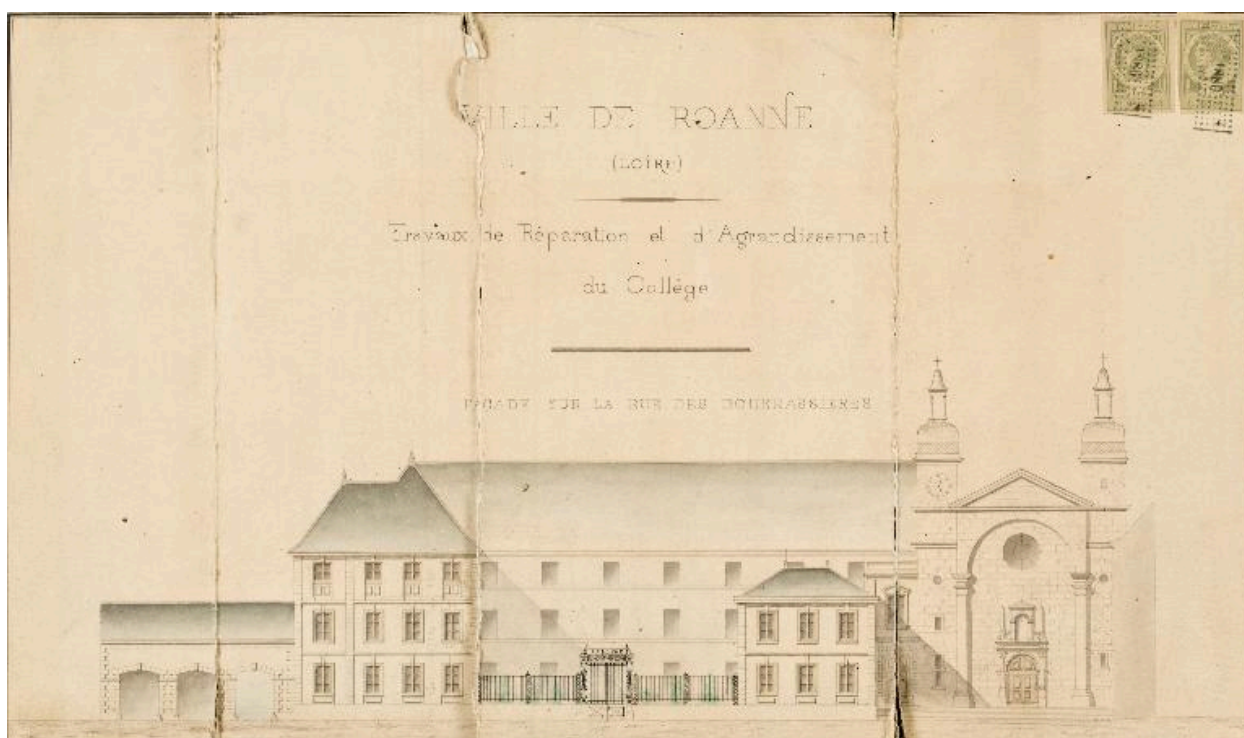 VILLE DE ROANNE
(LOIRE)
Travaux de Réparation et d'Agrandissement
du Collège
FAÇADE SUR LA RUE DES BOURRASSIERES